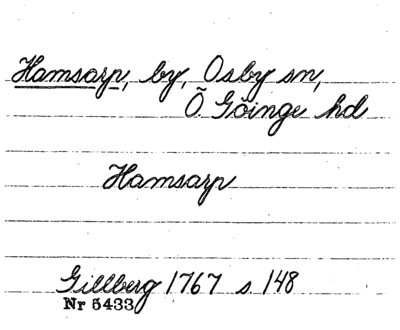 Hamsarp, by, Osby sn,
Ö Göinge hd
Hamsarp
Gillberg 1767 s 148
Nr 5433